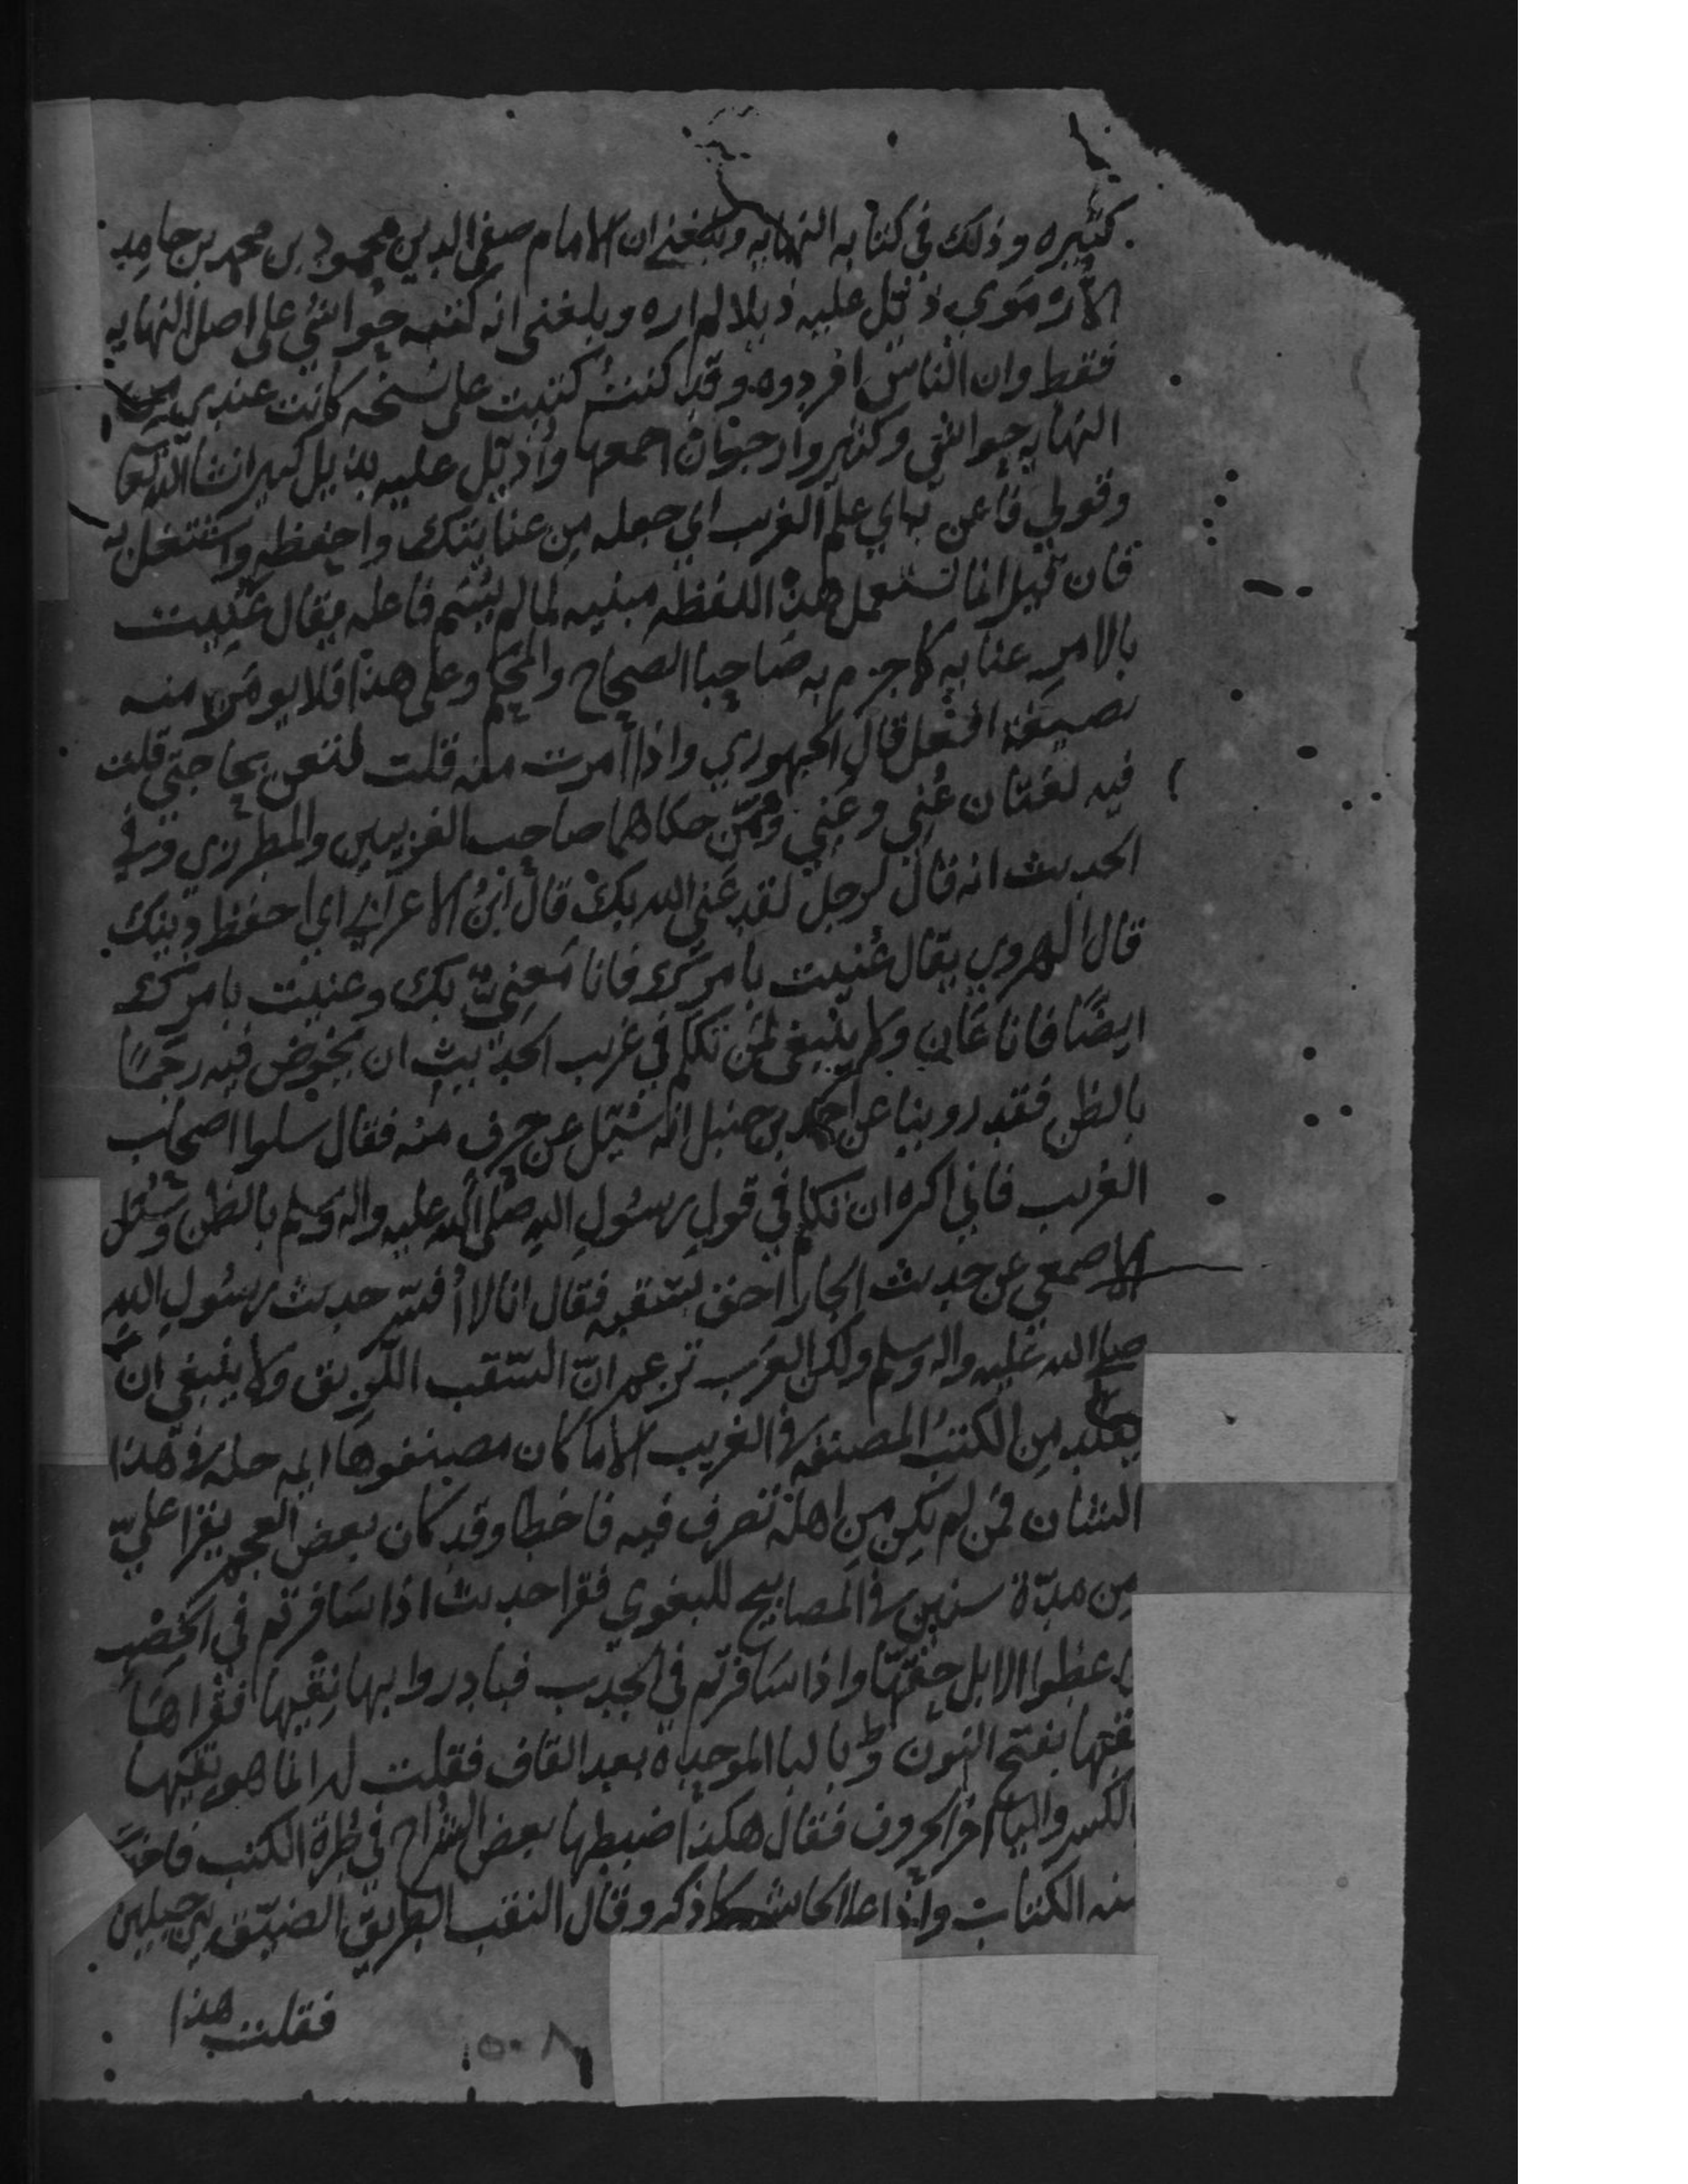 كثيره وذلك في كتابه النهايه وبلغني ان الامام صفي الدين محمود بن محمد بن حامد
الأرموي ذيّل عليه ذيلا لم اره وبلغني انه كتبه حواشي على اصل النهايه
فقط وان الناس افردوه وقد كنت كتبت على نسخه كانت عندي من
النهايه حواشي وكثيرا وارجوا ان اجمعها واُذيّل عليه بذيل كبير ان شا الله تعا
وقولي فاعن به اي بعلم الغريب اي اجعله من عنايتك واحفظه واشتغل به
فان قيل انما تستعمل هذه اللفظه مبنيه لما لم يُسَم فاعله يقال عُنِيت
بالامر عنايه كما جزم به صَاحبا الصحاح والمحكم وعلى هذا فلا يومَر منه
بصيغة افعل قال الجوهري واذا أمرت منه قلت لتعن بحاجتي قلت
فيه لغتان عُنِي وعَنِي وممّن حكاهما صاحب الغريبين والمطرزي وفي
الحديث انه قال لرجل لقد عَنِي الله بك قال ابنُ الاعرابي اي احفظ دينك
قال الهروي يقال عُنيت بامرك فانا مَعنِيّ بك وعنيت بامرك
ايضًا فانا عَانٍ ولا ينبغي لمن تكلم في غريب الحديث ان يخوض فيه رجمًا
بالظن فقد روينا عن احمد بن حنبل انه سُئِل عن حرف منه فقال سلوا اصحاب
الغريب فاني اكره ان تكلم في قول رسُولِ الله صلى الله عليه واله وسلم بالظن وسُئل
الاصمعي عن حديث الجار احق بسَقبه فقال انا لا أُفسّر حديث رسُول الله
صلى الله عليه واله وسلم ولكن العرب تزعم انّ السّقب اللّزيق ولا ينبغي ان
يقلد مِن الكتب المصنفه في الغريب الا ما كان مصنفوها ايمه جله في هذا
الشان فمن لم يكن مِن اهله تصرف فيه فاخطا وقد كان بعض العجم يقرا عليّ
من مدّة سنين في المصابيح للبغوي فقرا حديث اذا سَافرتم في الخِصْب
فاعطوا الابل حقّها واذا سَافرتم في الجدب فبادروا بها نِقْيها فقراهَا
نقبها بفتح النون وبالبا الموحدة بعد القاف فقلت له انما هو نِقْيها
بالكسر واليا اخر الحروف فقال هكذا ضبطها بعض الشراح في طُرة الكتب فاخذت
منه الكتاب واذا على الحاشيه كما ذكر وقال النقب الطريق الضيّق بين جبلين
فقلت هذا
٥٠٨